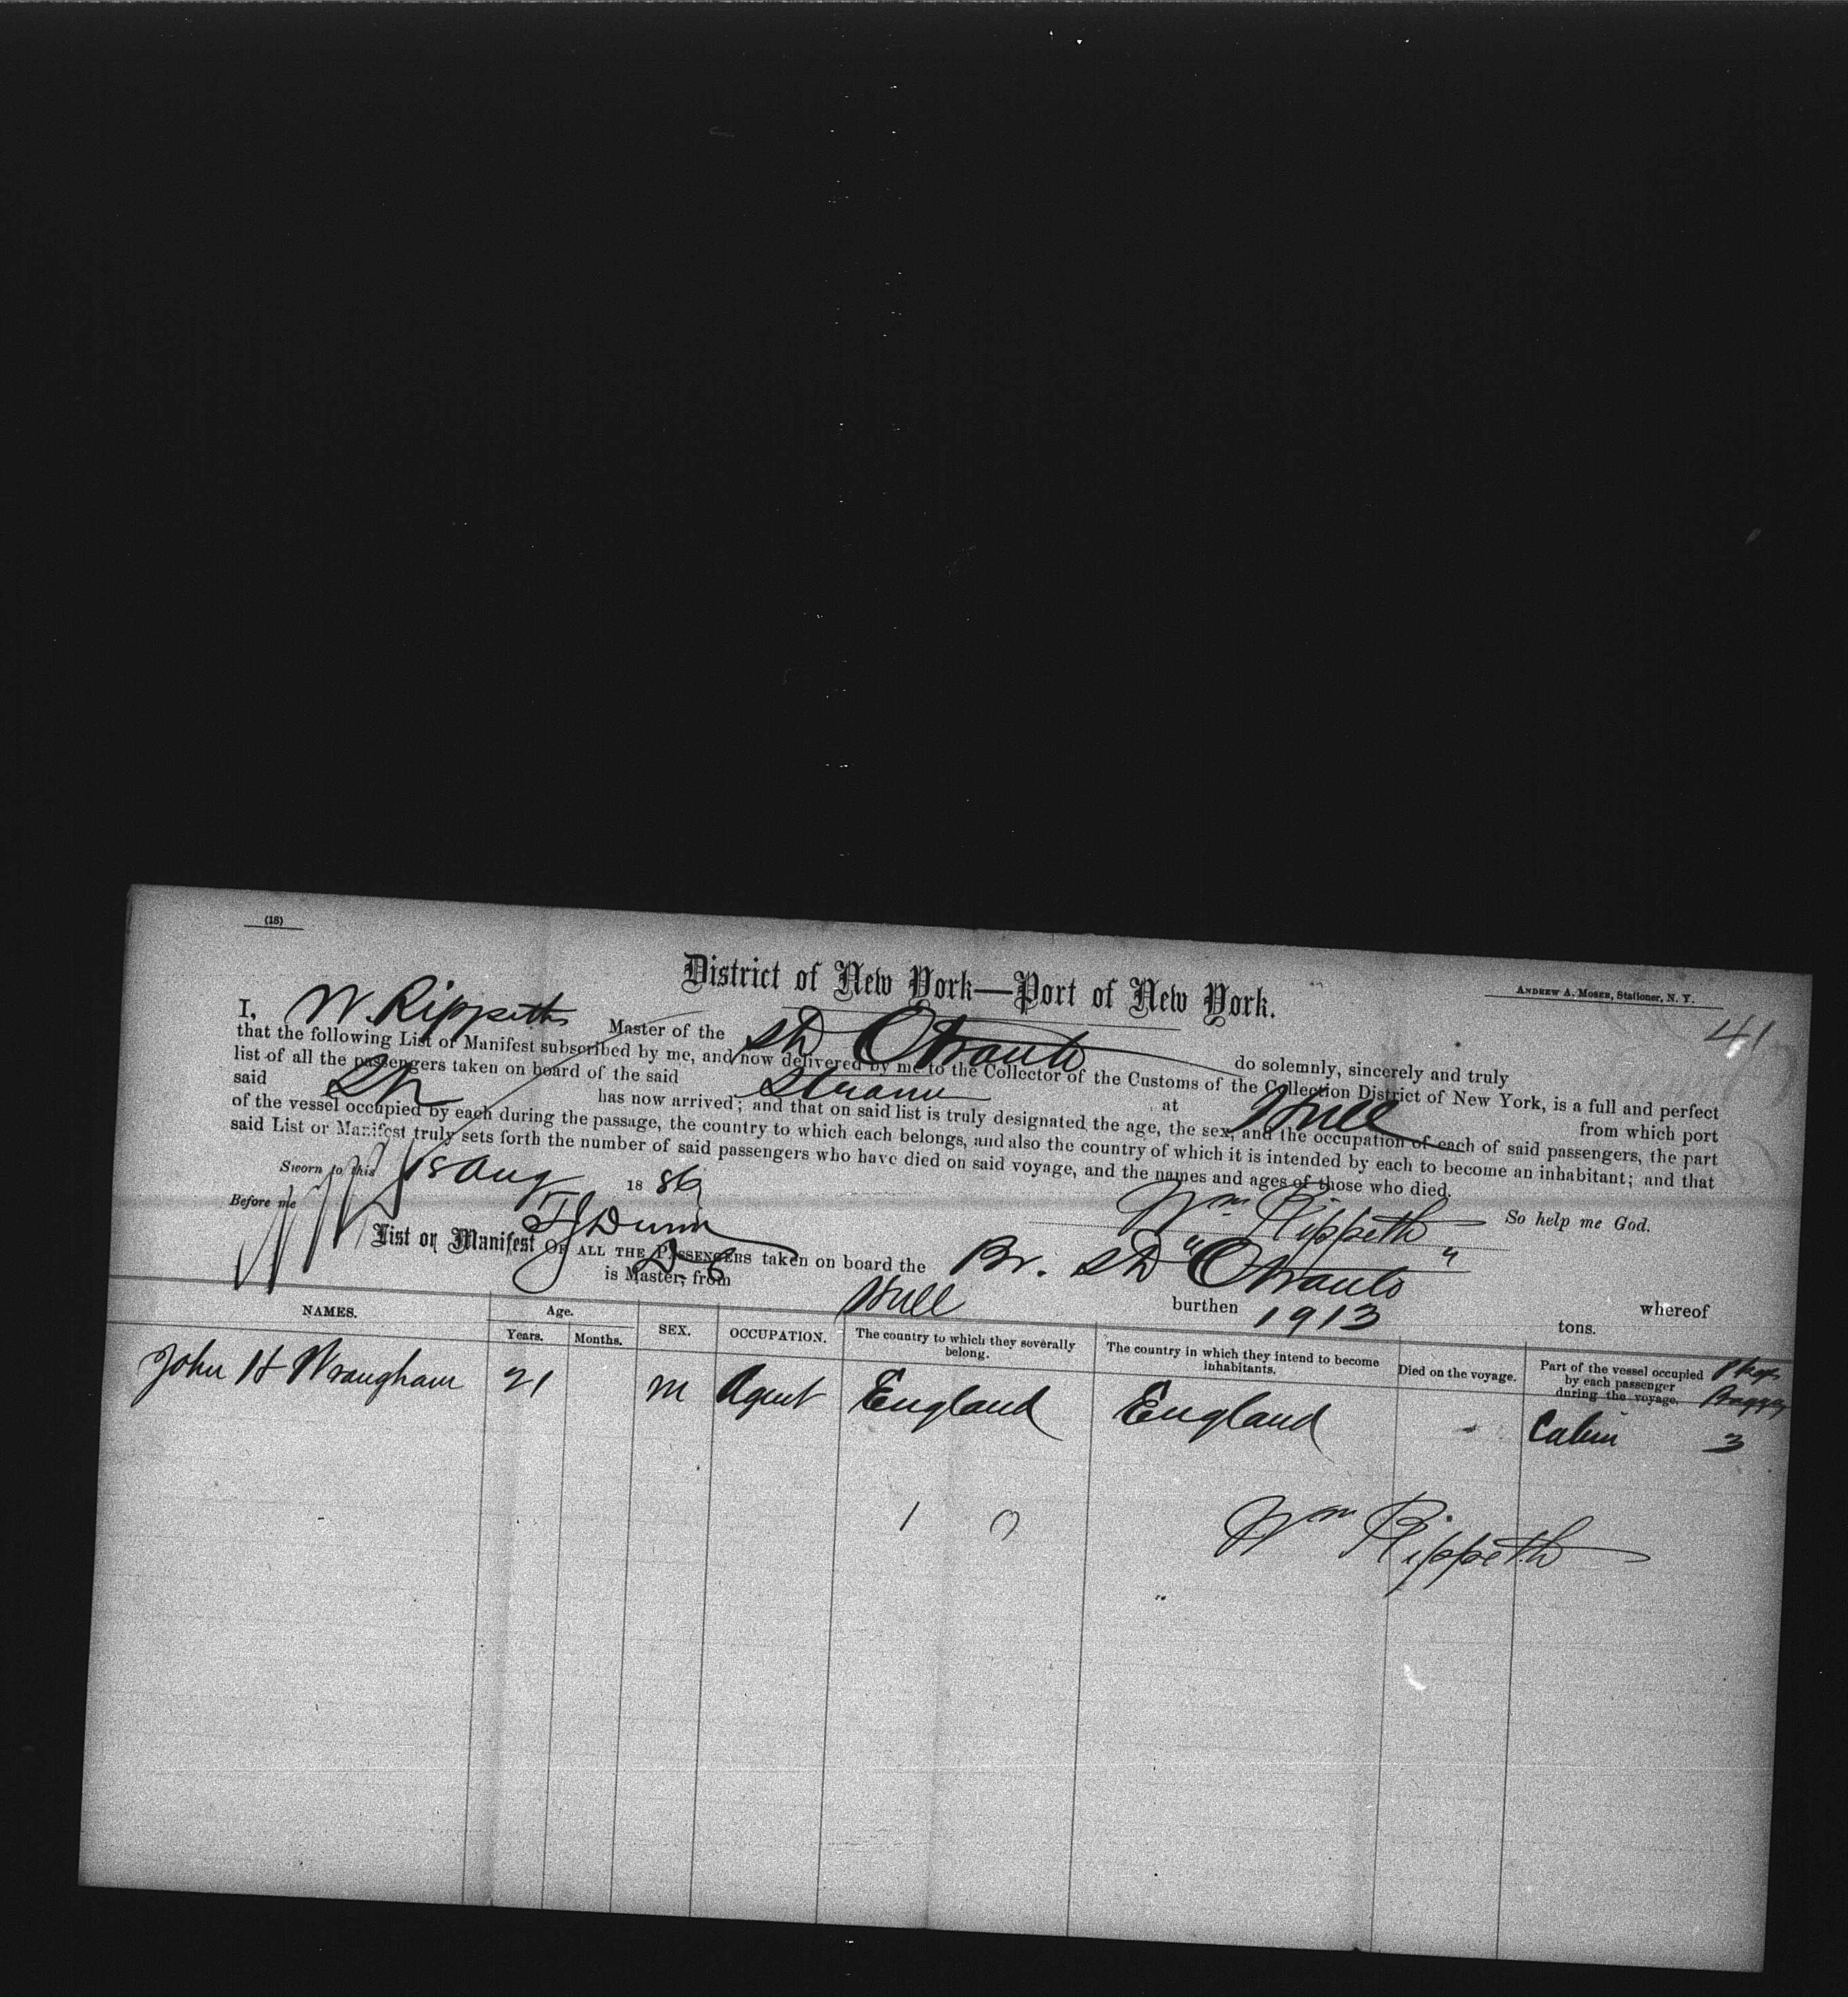 (18)
District of New York—Port of New York.
ANDREW A. MOSER, Stationer, N. Y.
41
I, W. Rippeth Master of the Otranto do solemnly, sincerely and truly
that the following List or Manifest subscribed by me, and now delivered by me to the Collector of the Customs of the Collection District of New York, is a full and perfect
list of all the passengers taken on board of the said at Hull from which port
said has now arrived; and that on said list is truly designated the age, the sex, and the occupation of each of said passengers, the part
of the vessel occupied by each during the passage, the country to which each belongs, and also the country of which it is intended by each to become an inhabitant; and that
said List or Manifest truly sets forth the number of said passengers who have died on said voyage, and the names and ages of those who died.
Sworn to this 18 Aug 1886 Wm Rippeth So help me God.
Before me T J Dunn
List or Manifest OF ALL THE PASSENGERS taken on board the Br. "Otranto" whereof
is Master, from Hull burthen 1913 tons.
NAMES. Age. Years. Months. SEX. OCCUPATION. The country to which they severally belong. The country in which they intend to become inhabitants. Died on the voyage. Part of the vessel occupied by each passenger during the voyage.
John H Wrangham 21 M Agent England England - Cabin 3
1 0
Wm Rippeth